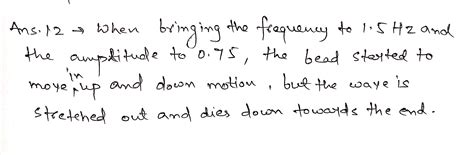 Ans.12 → When bringing the frequency to 1.5 Hz and
the amplitude to 0.75, the bead started to
move in up and down motion, but the wave is
stretched out and dies down towards the end.